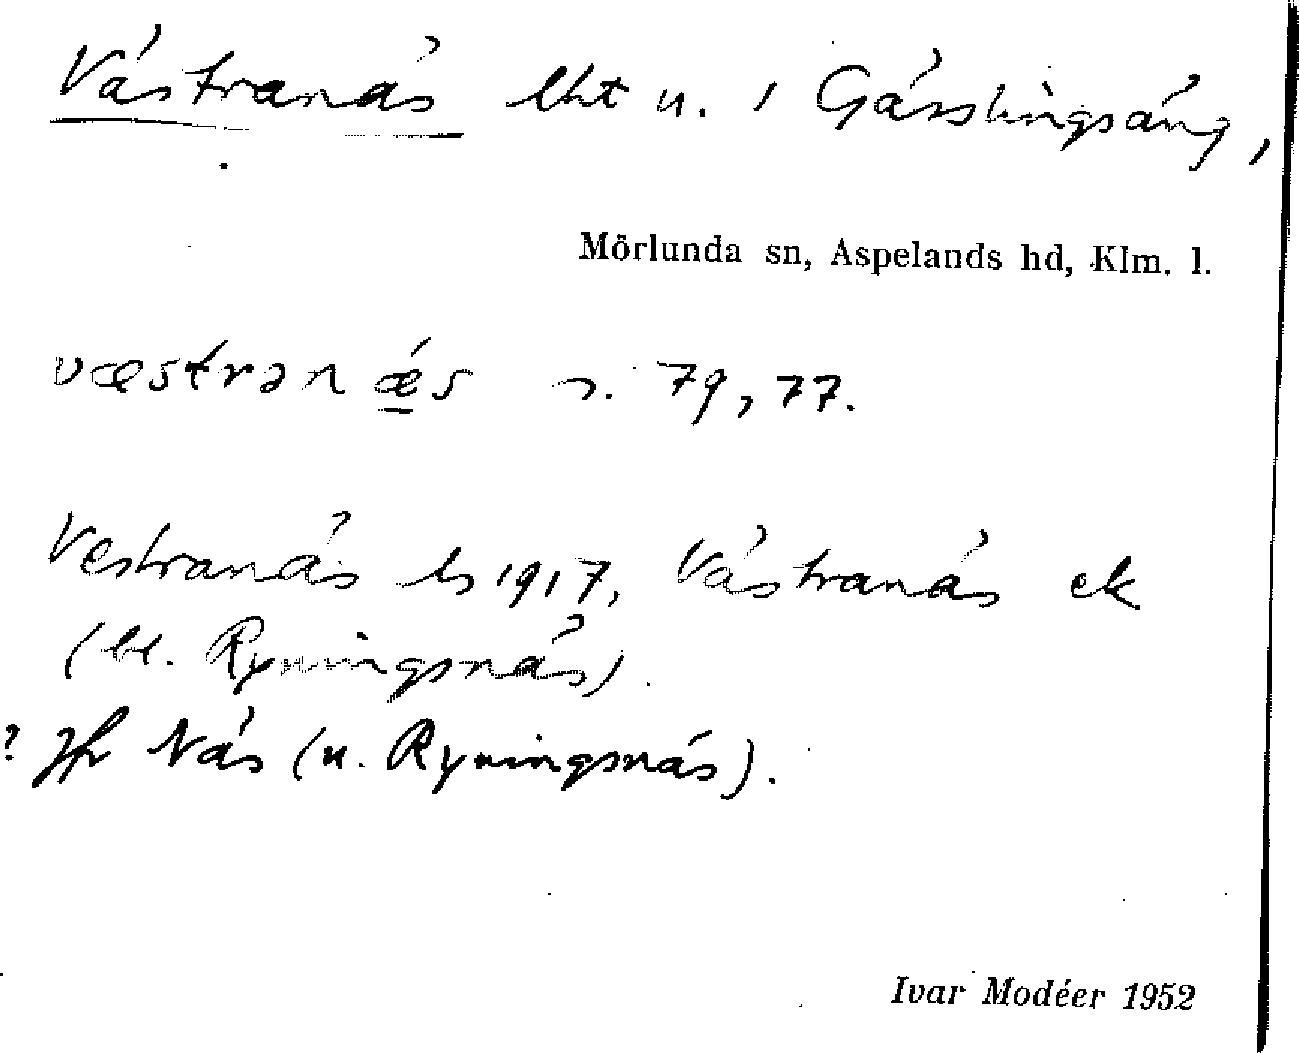 Västranäs lht u. 1 Gässlingsäng,
Mörlunda sn, Aspelands hd, Klm. l.
væstranǽs s. 79, 77.
Vestranäs ls 1917, Västranäs ek
(bl. Ryningsnäs).
? Jfr Näs (u. Ryningsnäs).
Ivar Modéer 1952